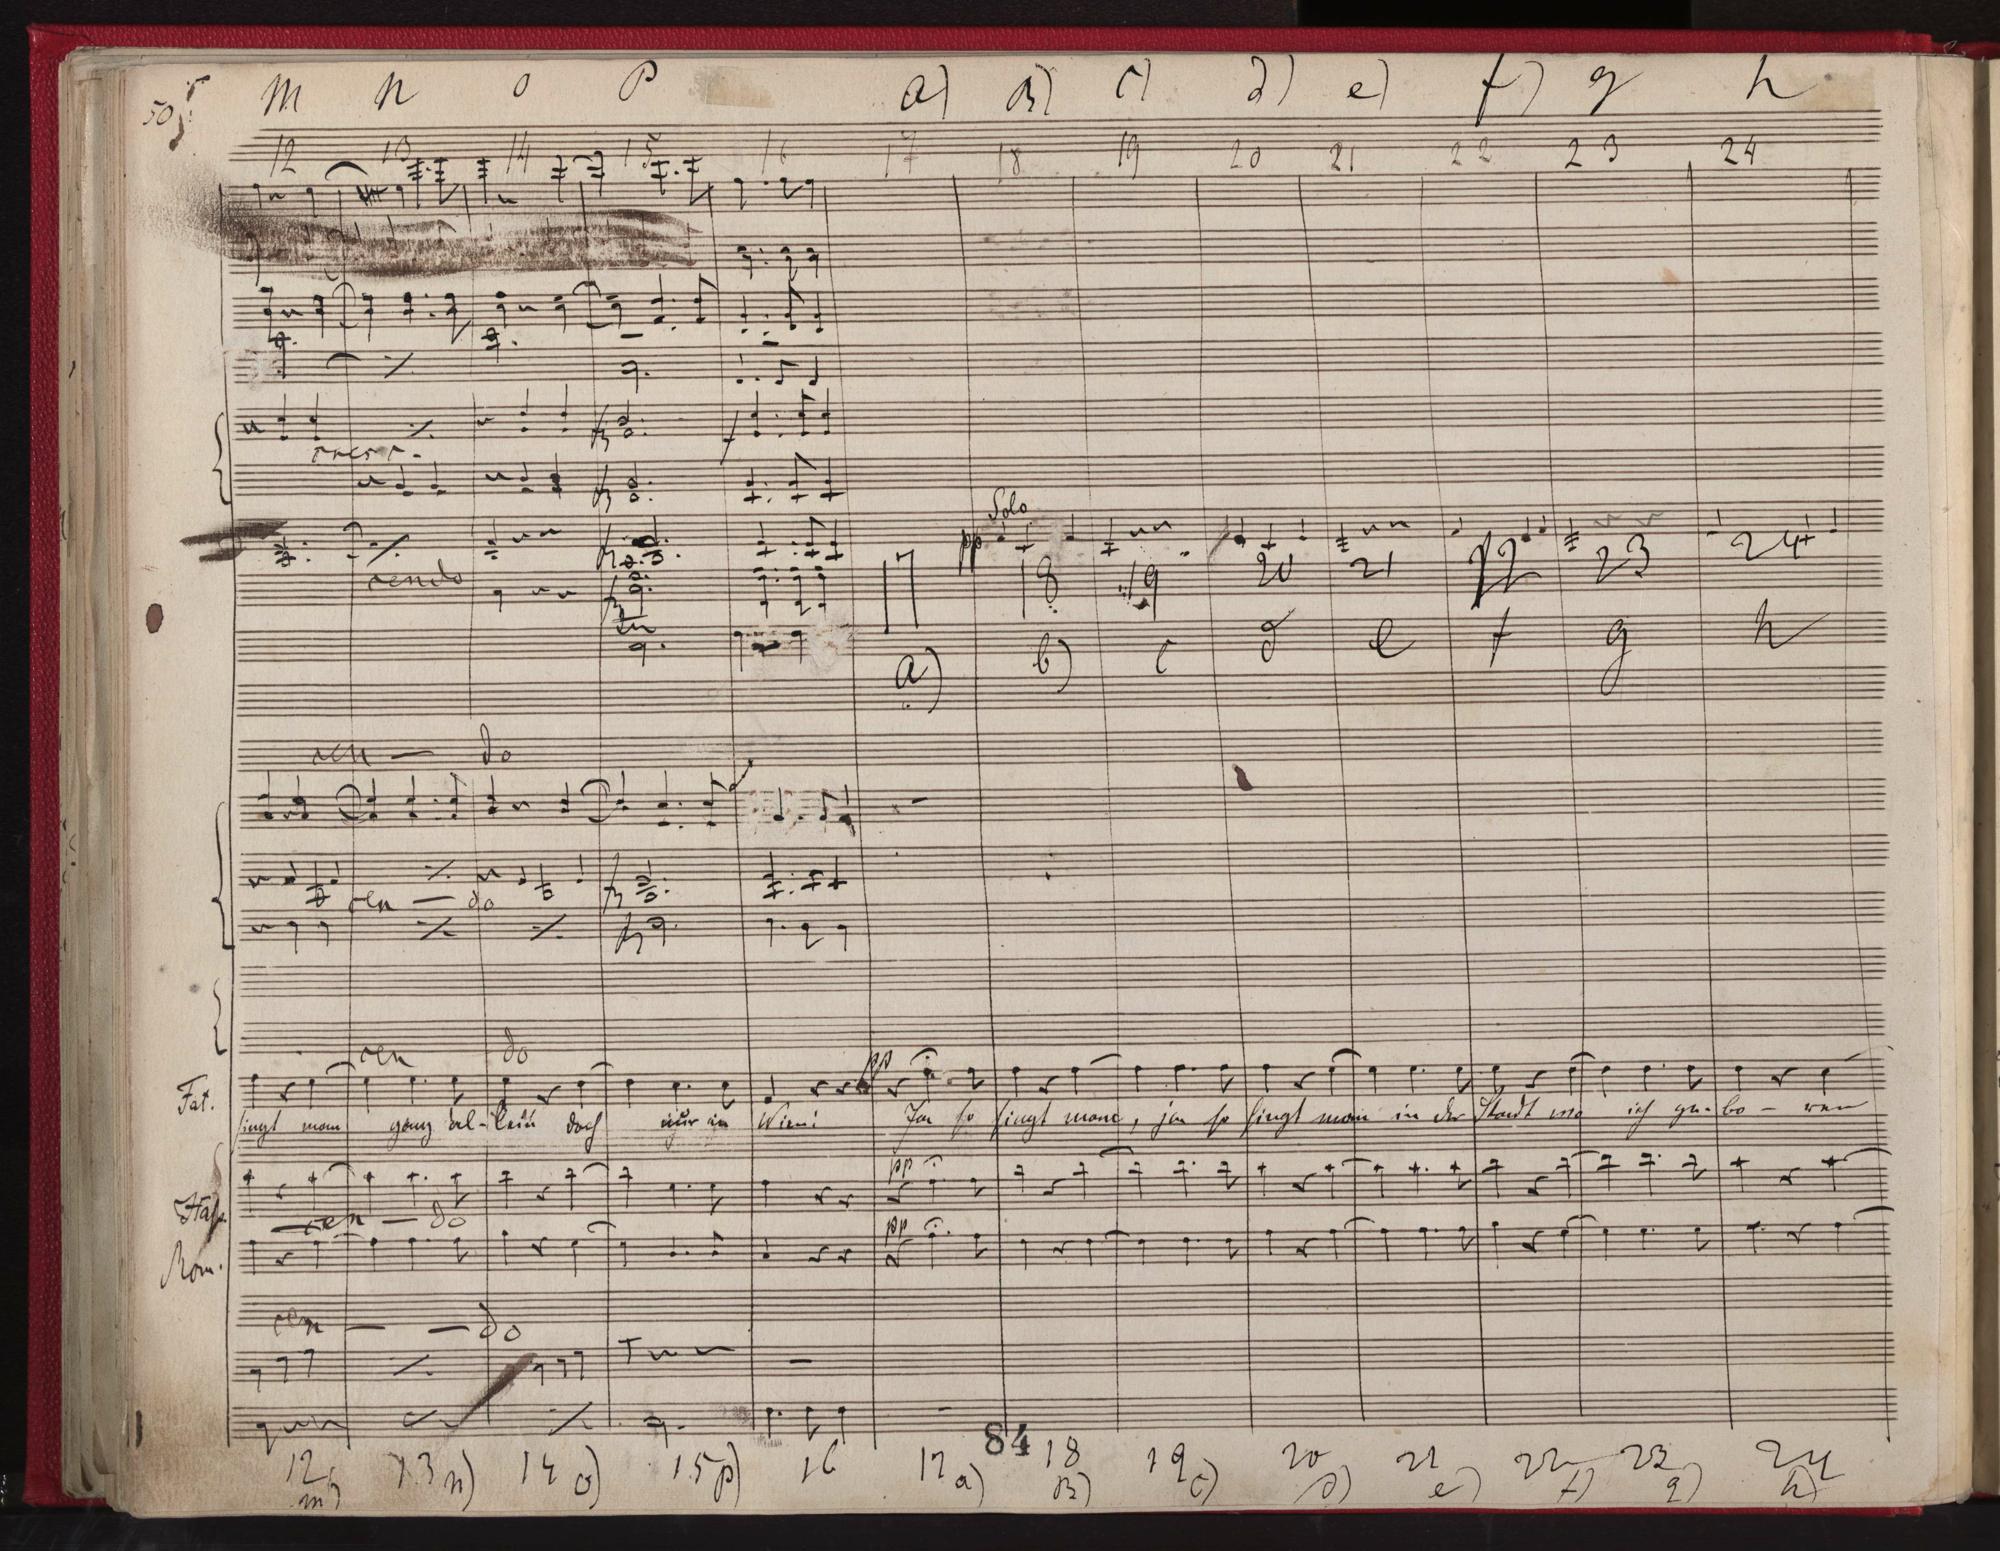 50
m n o p a) b) c) d) e) f) g h
12 13 14 15 16 17 18 19 20 21 22 23 24
cresc.
Solo
pp
cendo
17 18 19 20 21 22 23 24
a) b) c d e f g h
cen — do
cen — do
cen do
pp
Fat.
singt man ganz al-lein doch nur in Wien! Ja so singt man, ja so singt man in der Stadt wo ich ge-bo-ren
pp
Haß.
cen — do
pp
Rom.
cen — — do
84
12 13 14 15 16 17 18 19 20 21 22 23 24
m) n) o) p) a) b) c) d) e) f) g) h)